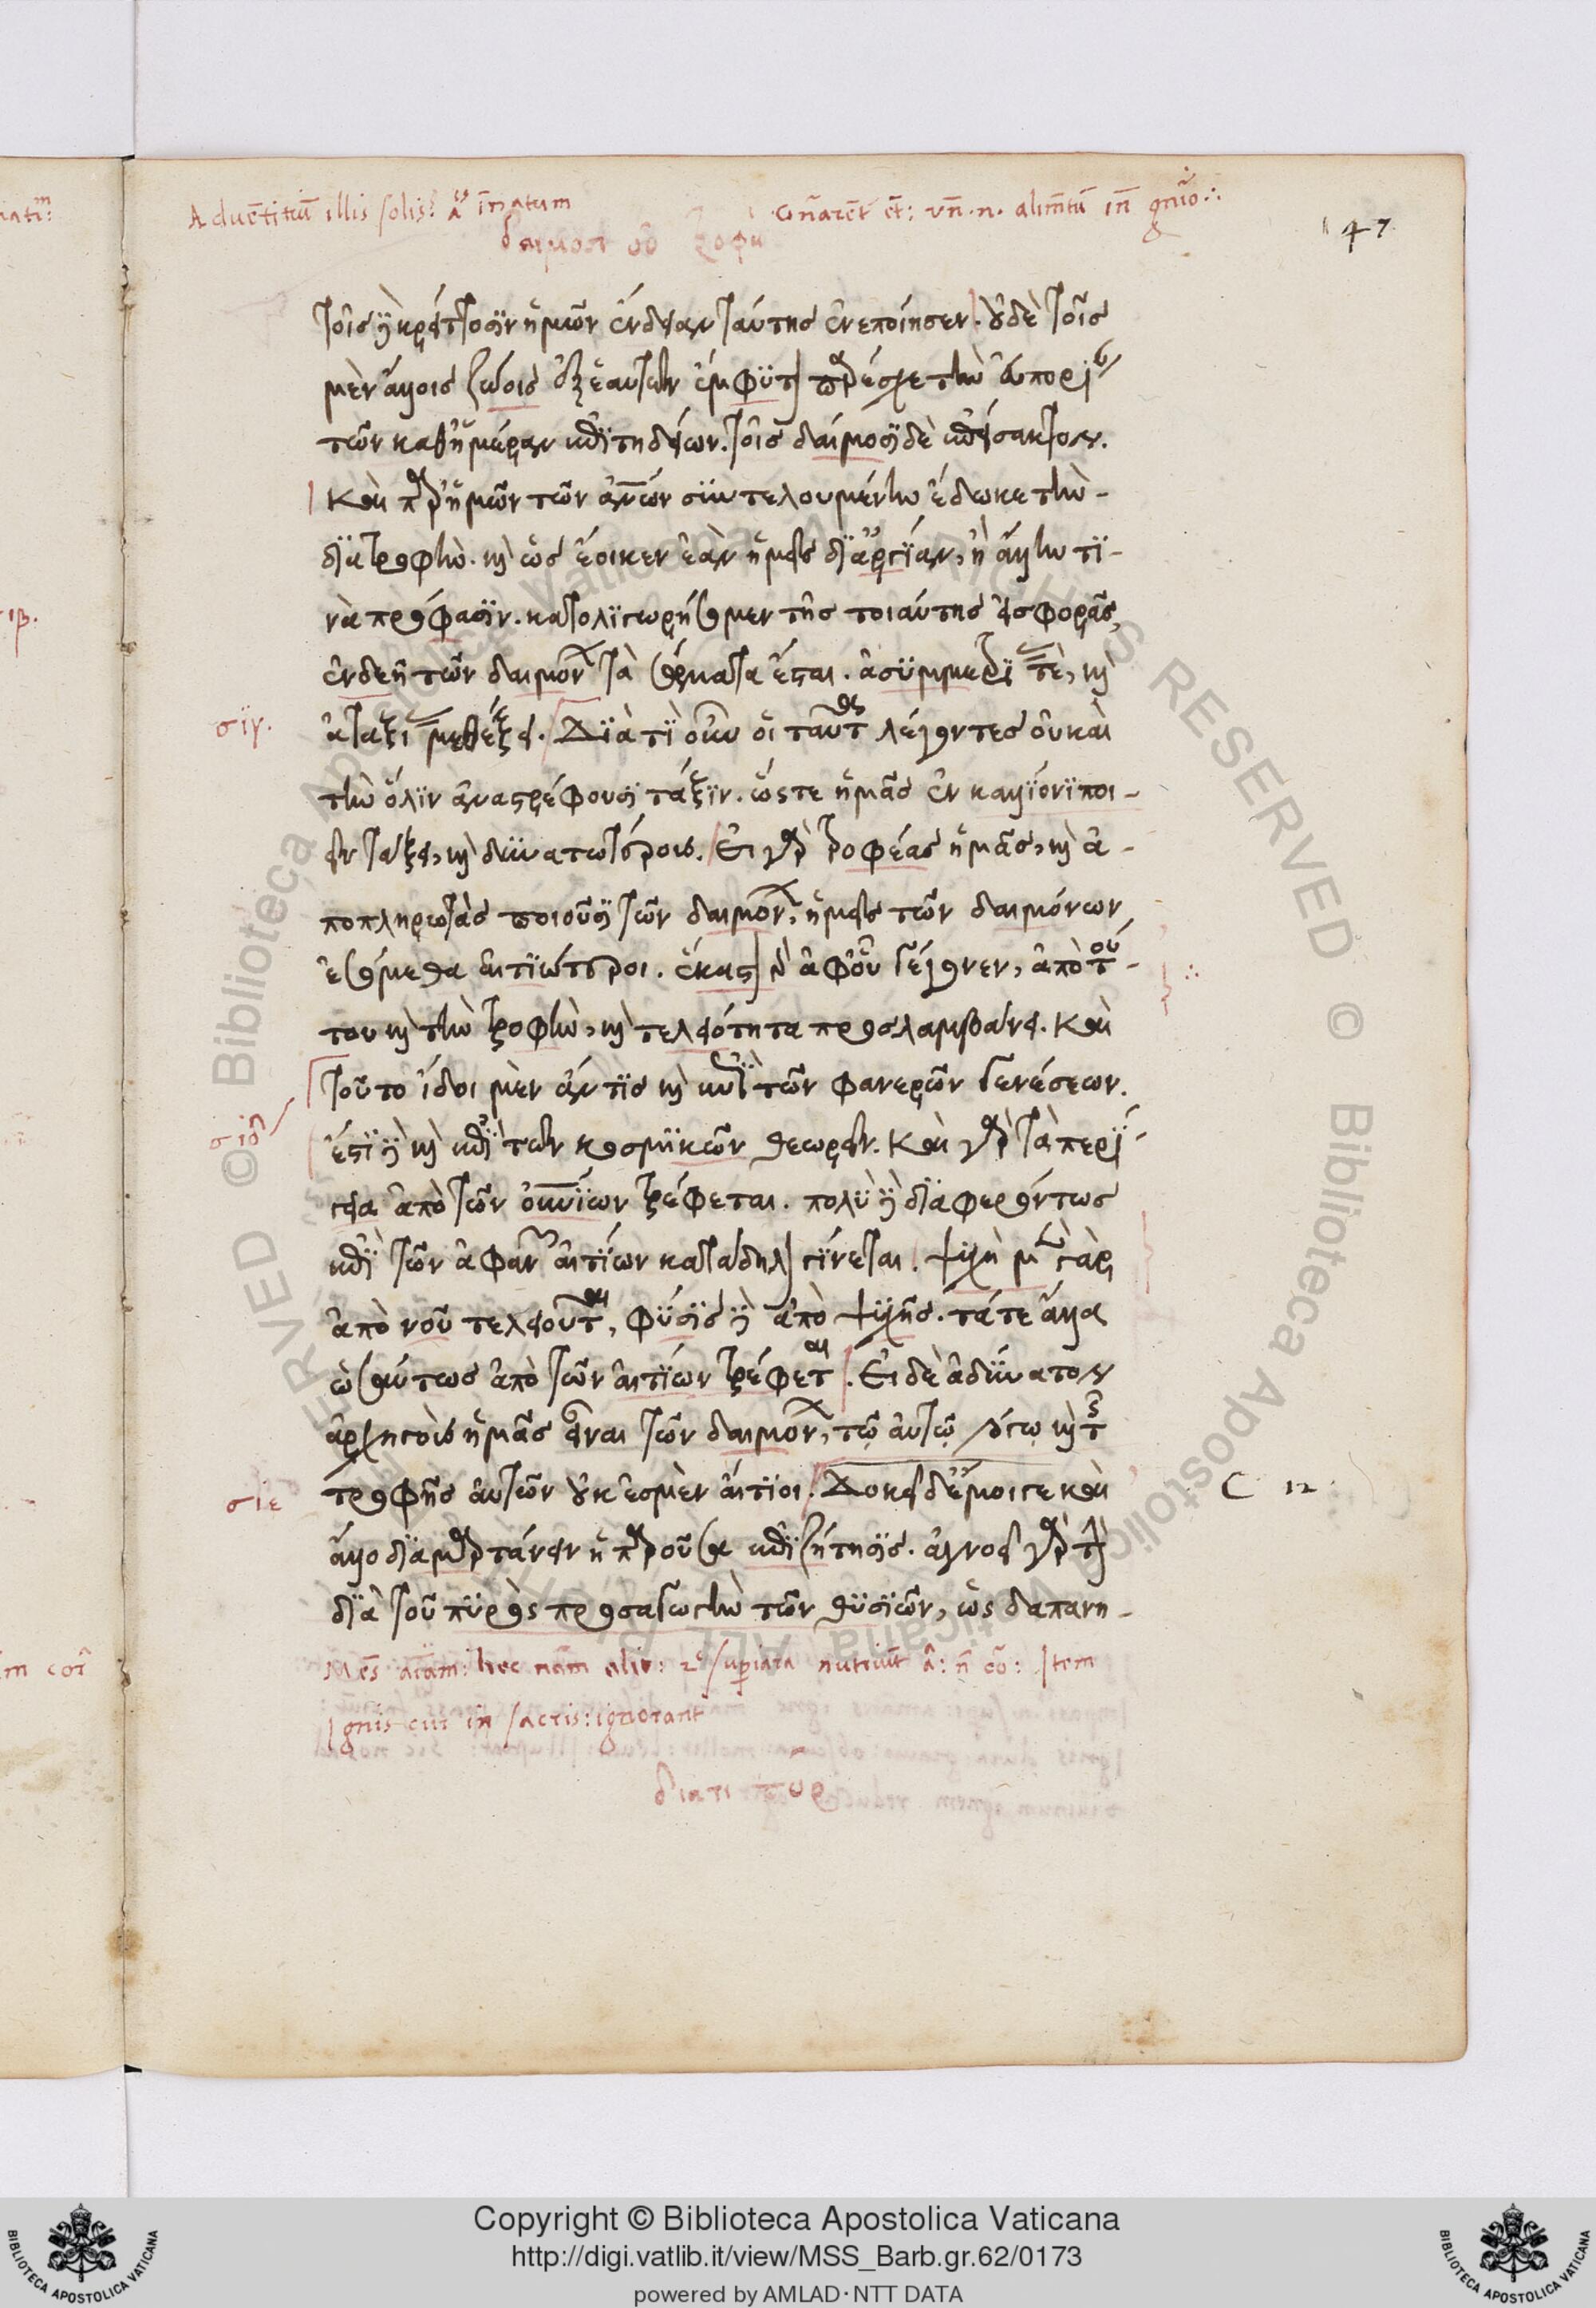 147
τοῖς δὲ κρείττοσιν ἡμῶν ἔνδειαν ταύτης ἐνεποίησεν. οὐδὲ τοῖς
μὲν ἄλλοις ζώοις ἐξ ἑαυτῶν ἔμφυτον παρέσχε τὴν εὐπορίαν
τῶν καθ' ἡμέραν ἐπιτηδείων. τοῖς δαίμοσι δὲ ἐπείσακτον.
καὶ παρ' ἡμῶν τῶν ἀνων συντελουμένην ἔδωκε τὴν
διατροφήν. καὶ ὡς ἔοικεν ἐὰν ἡμεῖς δι' ἀργίαν, ἢ ἄλλην τι-
νὰ πρόφασιν. κατολιγωρήσωμεν τῆς τοιαύτης εἰσφορᾶς,
ἐνδεῆ τῶν δαιμόνων τὰ σώματα ἔσται. ἀσυμμετρίας τὲ, καὶ
σιγ.
ἀταξίας μεθέξει. Διὰ τί οὖν οἱ ταῦτα λέγοντες οὐ καὶ
τὴν ὅλην ἀναστρέφουσι τάξιν. ὥστε ἡμᾶς ἐν καλλίονι ποι-
εῖν τάξει, καὶ δυνατωτέρους. Εἰ γὰρ τροφέας ἡμᾶς, καὶ ἀ-
ποπληρωτὰς ποιοῦσι τῶν δαιμόνων, ἡμεῖς τῶν δαιμόνων
ἐσόμεθα αἰτιώτεροι. ἕκαστον γὰρ ἀφ' οὗ γέγονεν, ἀπὸ τού-
του καὶ τὴν τροφὴν, καὶ τελειότητα προσλαμβάνει. καὶ
τοῦτο ἴδοι μὲν ἄν τις καὶ ἐπὶ τῶν φανερῶν γενέσεων.
σιδ
ἔστι δὲ καὶ ἐπὶ τῶν κοσμικῶν θεωρεῖν. καὶ γὰρ τὰ περί-
γεια ἀπὸ τῶν οὐνίων τρέφεται. πολὺ δὲ διαφερόντως
ἐπὶ τῶν ἀφανῶν αἰτίων κατάδηλον γίνεται. ψυχὴ μὲν γὰρ
ἀπὸ νοῦ τελειοῦται, φύσις δὲ ἀπὸ ψυχῆς. τά τε ἄλλα
ὡσαύτως ἀπὸ τῶν αἰτίων τρέφεται. Εἰ δὲ ἀδύνατον
ἀρχηγοὺς ἡμᾶς εἶναι τῶν δαιμόνων, τῷ αὐτῷ λόγῳ καὶ τῆς
τροφῆς αὐτῶν οὐκ ἐσμὲν αἴτιοι. Δοκεῖ δ' ἔμοιγε καὶ
σιε
C 12
ἄλλο διαμαρτάνειν ἡ παροῦσα ἐπιζήτησις. ἀγνοεῖ γὰρ τὴν
διὰ τοῦ πυρὸς προσαγωγὴν τῶν θυσιῶν, ὡς δαπανη-
Ignis cur in sacris: ignorant
διατι πυρ
Copyright © Biblioteca Apostolica Vaticana
http://digi.vatlib.it/view/MSS_Barb.gr.62/0173
powered by AMLAD·NTT DATA